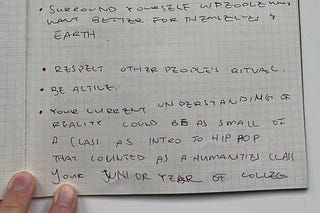 • SURROUND YOURSELF W/PEOPLE WHO
WANT BETTER FOR THEMSELVES &
EARTH
• RESPECT OTHER PEOPLE'S RITUAL.
• BE ACTIVE.
• YOUR CURRENT UNDERSTANDING OF
REALITY COULD BE AS SMALL OF
A CLASS AS INTRO TO HIP HOP
THAT COUNTED AS A HUMANITIES CLASS
YOUR JUNIOR YEAR OF COLLEG